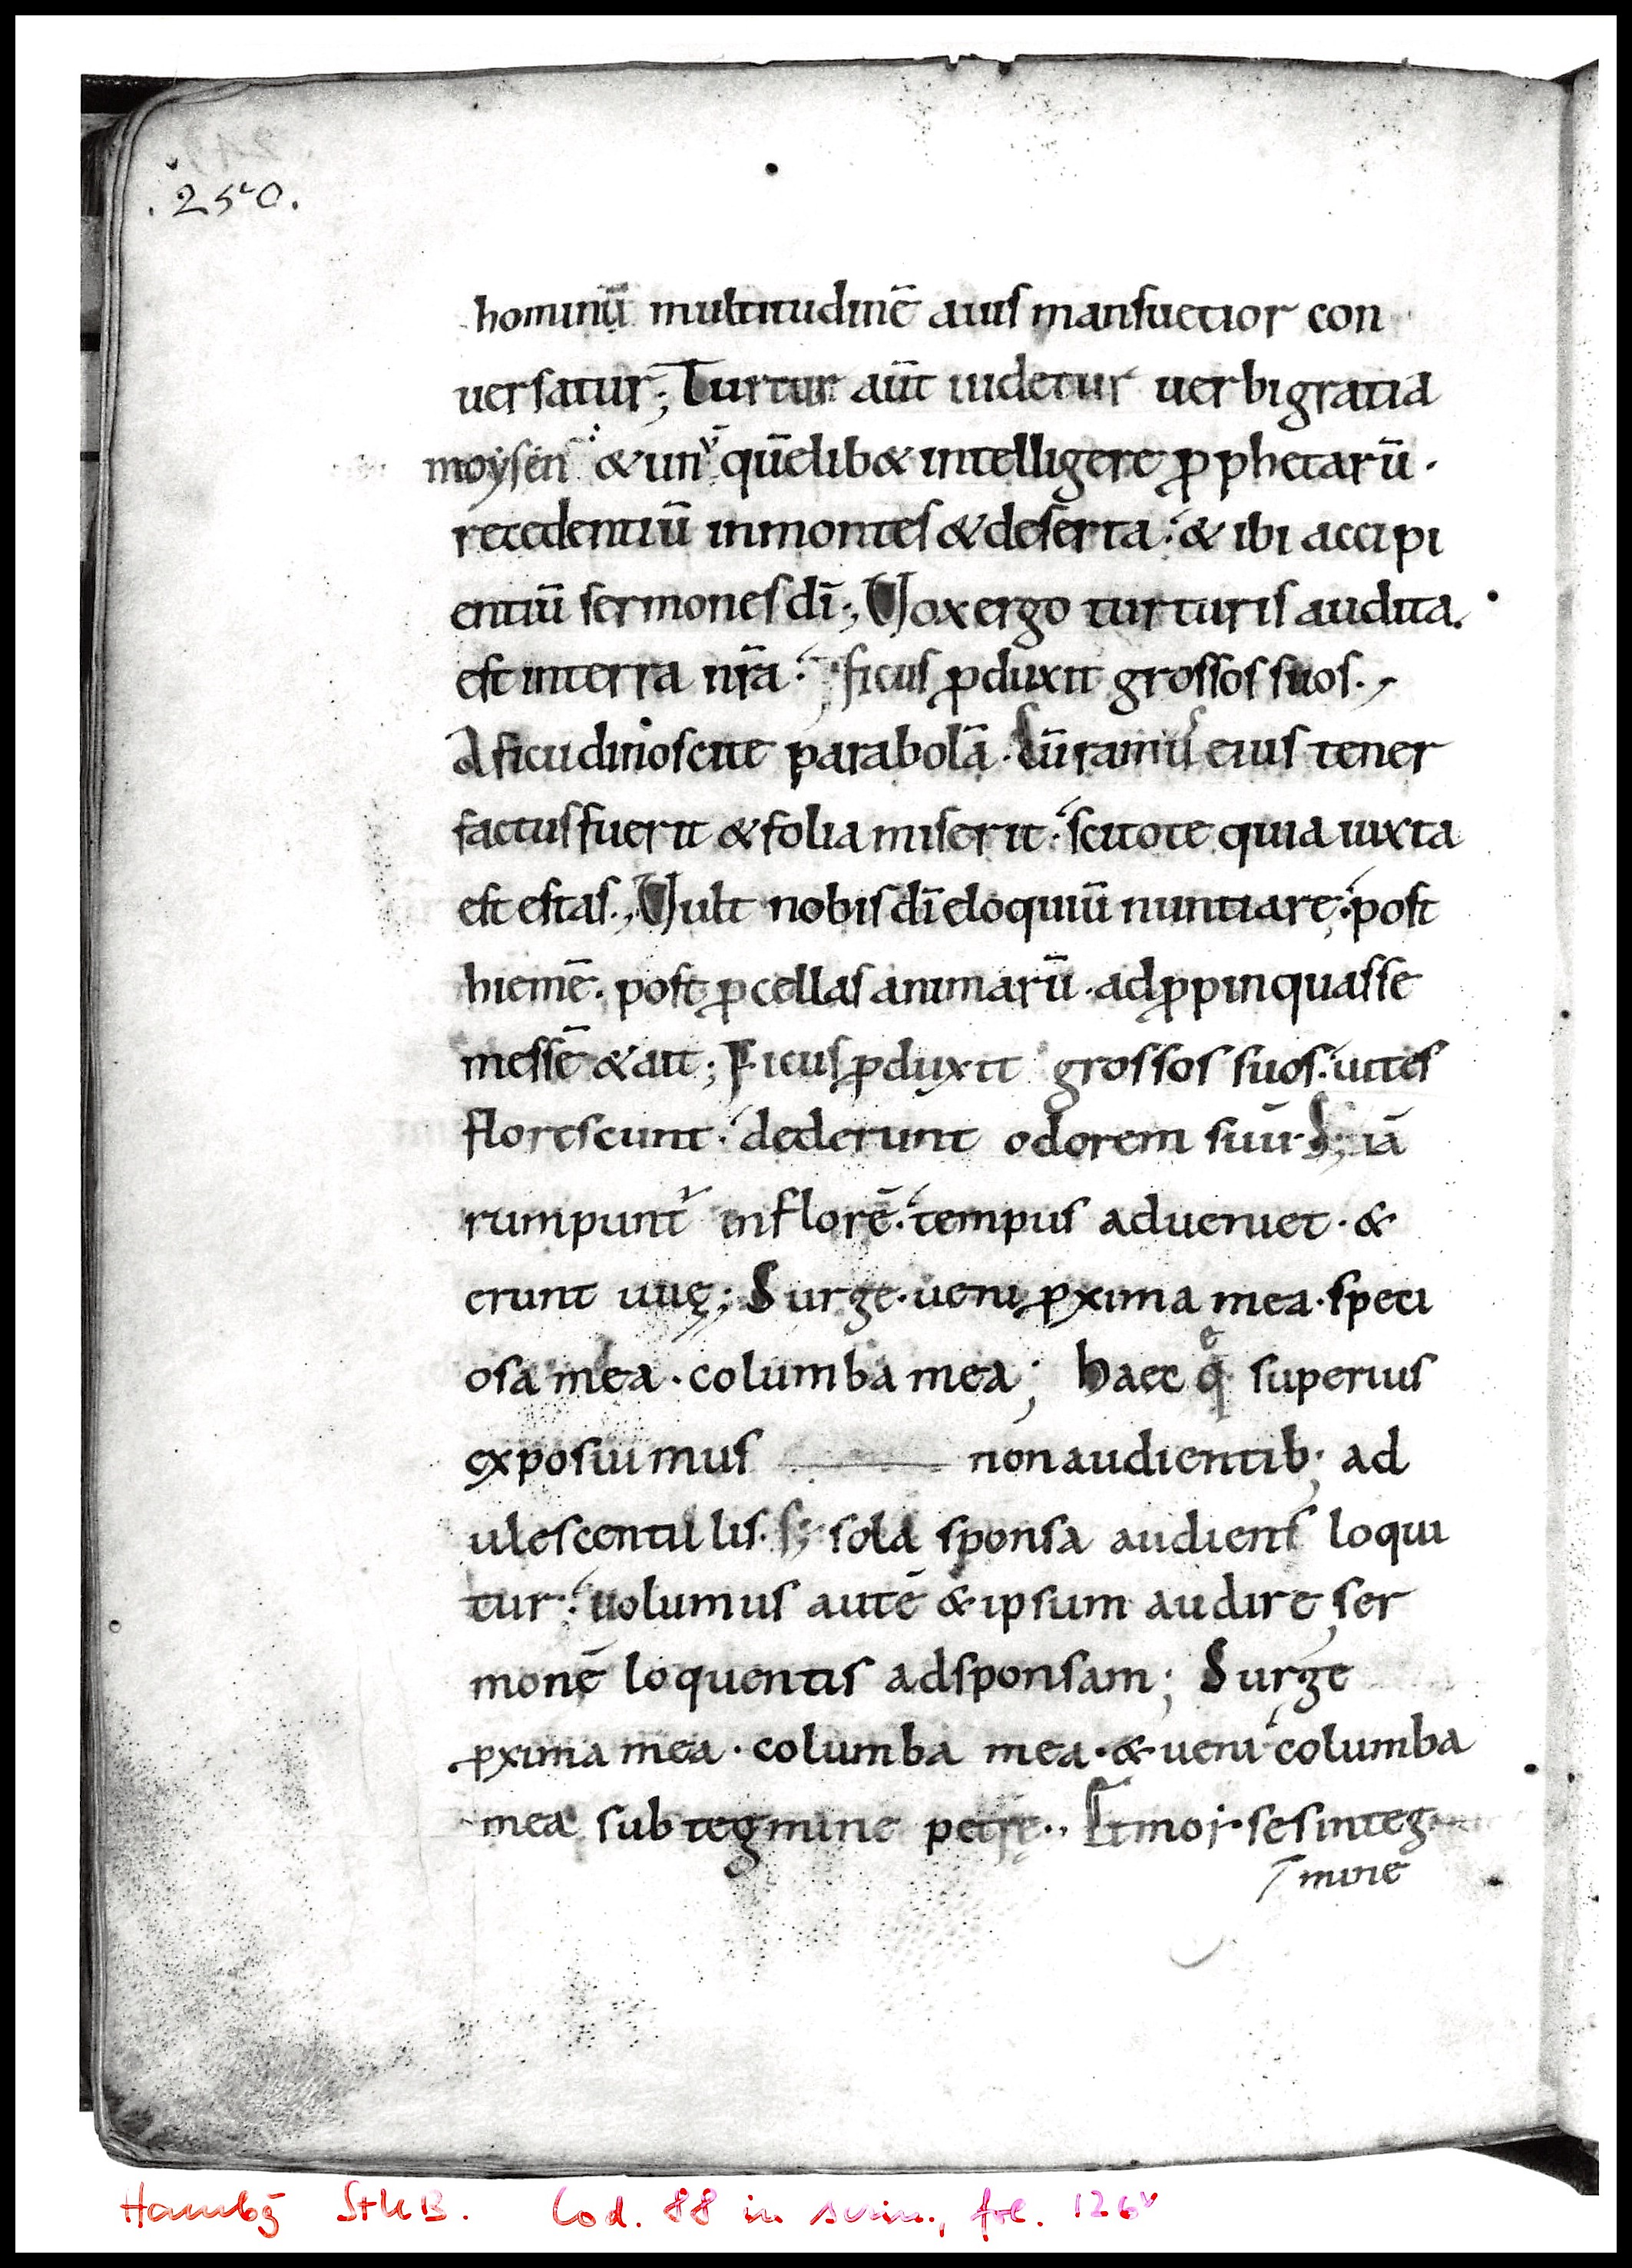 .250.
hominū multitudinē auis mansuetior con
uersatur; Turtur aūt uidetur uerbi gratia
moysen & unū quēlib& intelligere ꝓphetarū.
recedentiū inmontes & deserta: & ibi accipi
entiū sermones dī; Vox ergo turturis audita.
est interra nr̄a: ficus ꝓduxit grossos suos.,
A ficu dinoscite parabolā. Cū ramus eius tener
factus fuerit & folia miserit: scitote quia iuxta
est estas., Vult nobis dī eloquiū nuntiare: post
hiemē. post ꝓcellas animarū. adꝓpinquasse
messē & ait; Ficus ꝓduxit grossos suos: uites
florescunt: dederunt odorem suū. S; iā
rumpunt inflorē: tempus adueniet. &
erunt uuę; Surge. ueni ꝓxima mea. speci
osa mea. columba mea; Haec q̨ superius
exposuimus nonaudientib; ad
ulescentullis. s; sola sponsa audiens loqui
tur: uolumus autē & ipsum audire ser
monē loquentis adsponsam; Surge
ꝓxima mea. columba mea. & ueni columba
mea sub tegmine petrę., Et moi ses integ
mine
Hambg StUB. Cod. 88 in scrin., fol. 126v